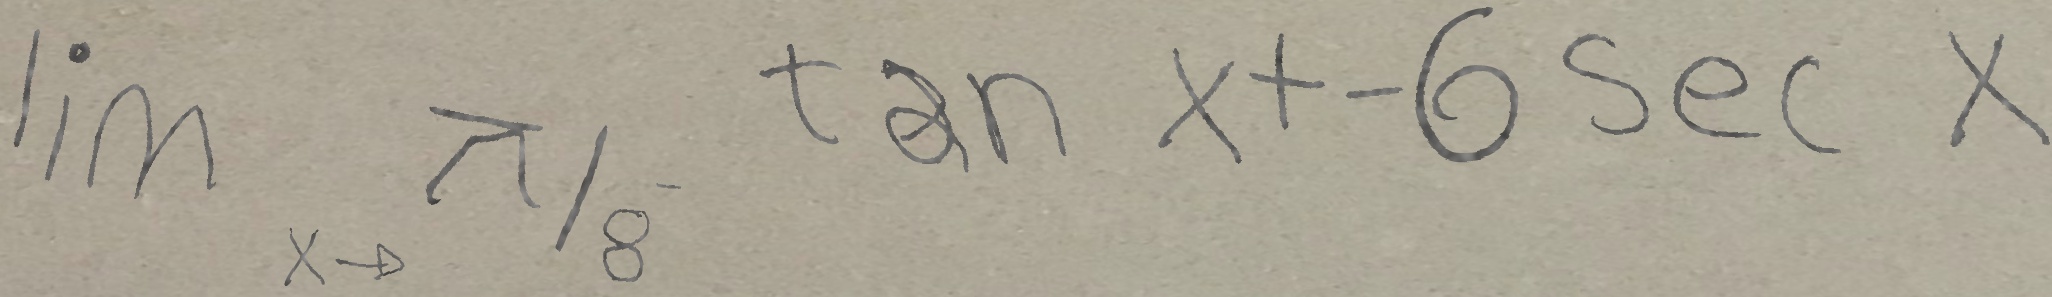 lim x→π/8⁻ tan x+-6 sec x